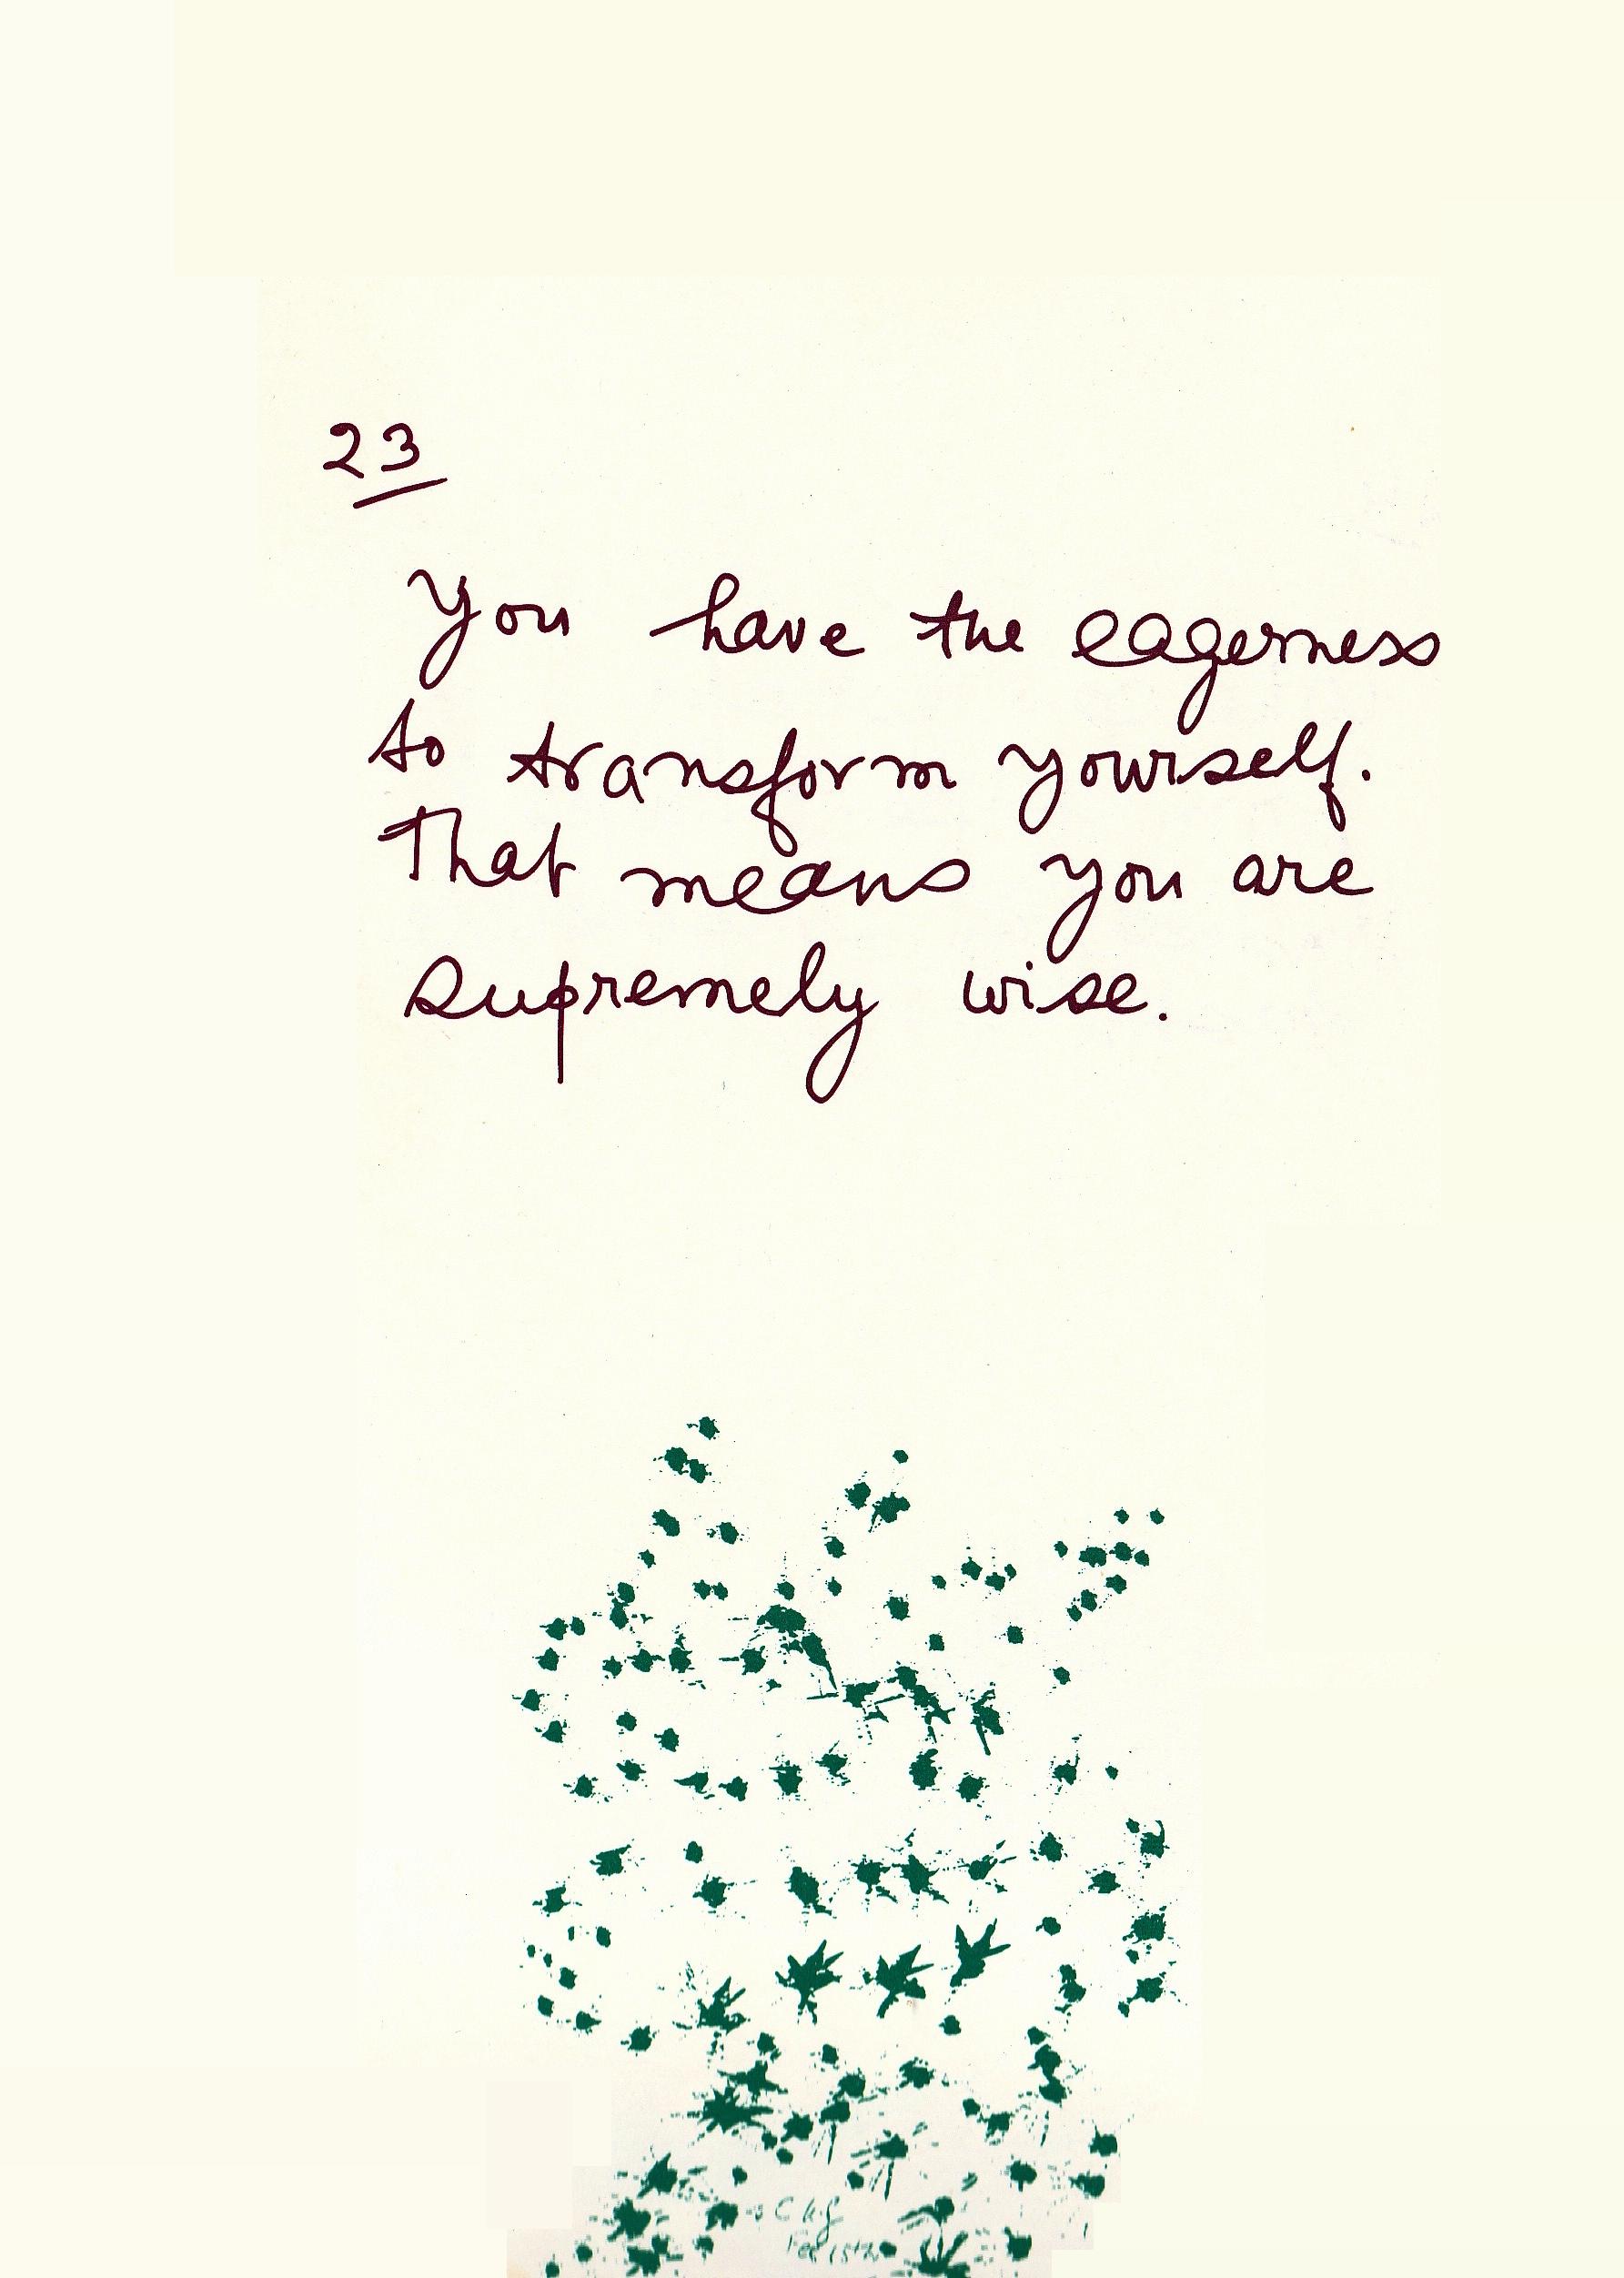 23
You have the eagerness
to transform yourself.
That means you are
supremely wise.